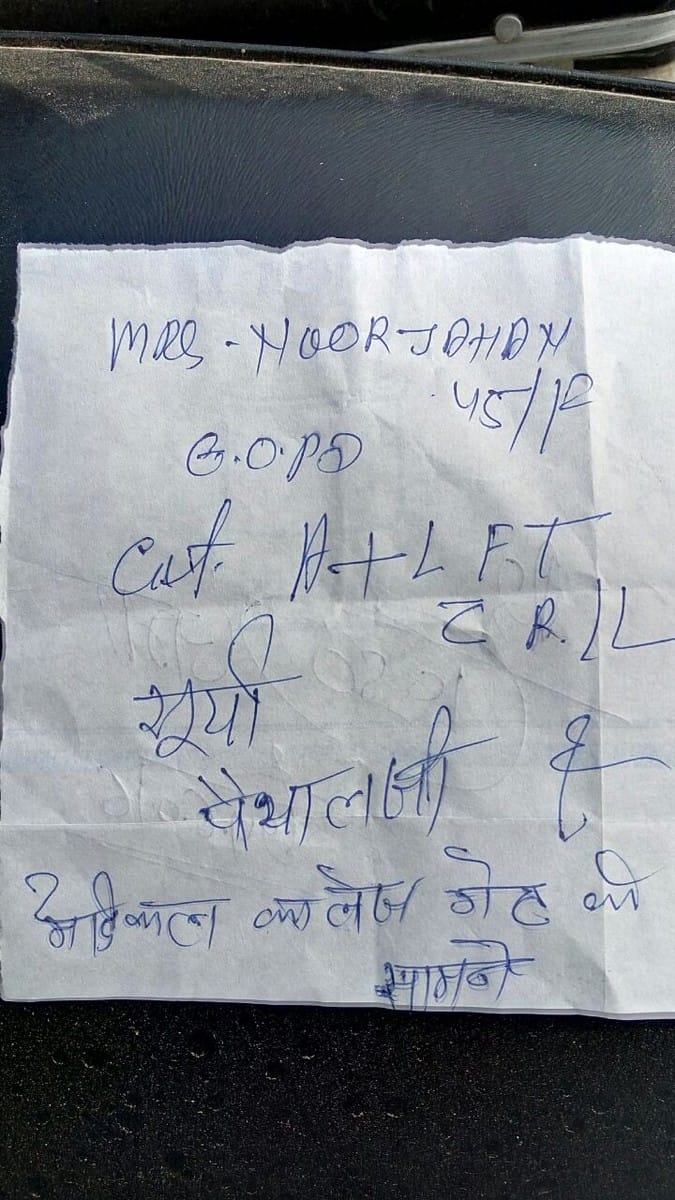 MRS - NOOR JAHAN
45/F
G.O.PD
Cat. A + LFT
R.
सूर्या
पैथालजी
मेडिकल कालेज गेट के
सामने